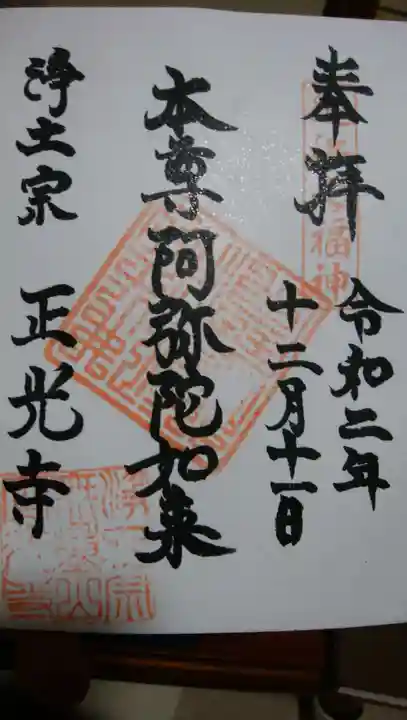 奉拝
福神
令和二年
十二月十一日
本尊阿弥陀如来
浄土宗 正光寺